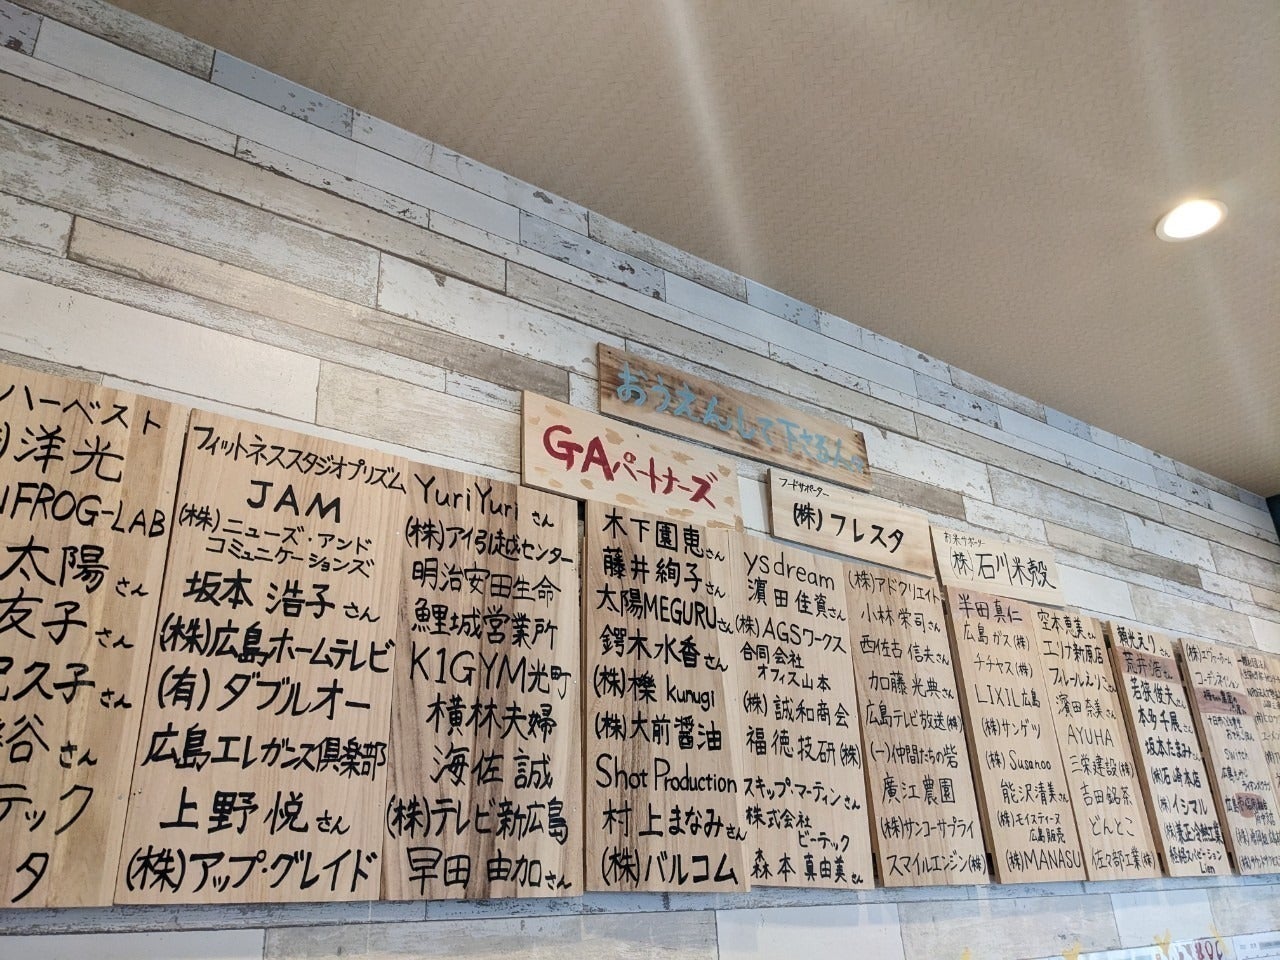 おうえんして下さる人々
GAパートナーズ
フードサポーター
(株)フレスタ
お米サポーター
(株)石川米穀
ハーベスト
洋光
FROG-LAB
太陽さん
友子さん
久子さん
谷さん
テック
タ
フィットネススタジオプリズム
JAM
(株)ニューズ・アンド
コミュニケーションズ
坂本 浩子さん
(株)広島ホームテレビ
(有)ダブルオー
広島エレガンス倶楽部
上野 悦さん
(株)アップ・グレイド
YuriYuriさん
(株)アイ引越センター
明治安田生命
鯉城営業所
K1GYM光町
横林夫婦
海佐 誠
(株)テレビ新広島
早田 由加さん
木下園恵さん
藤井絢子さん
太陽MEGURUさん
鍔木水香さん
(株)櫟 kunugi
(株)大前醤油
Shot Production
村上まなみさん
(株)バルコム
ysdream
濱田佳資さん
(株)AGSワークス
合同会社
オフィス山本
(株)誠和商会
福徳技研(株)
スキップ・マーティンさん
株式会社
ビーテック
森本真由美さん
(株)アドクリエイト
小林栄司さん
西佐古 信夫さん
加藤光典さん
広島テレビ放送(株)
(一)仲間たちの砦
廣江農園
(株)サンコーサプライ
スマイルエンジン(株)
半田真仁
広島ガス(株)
チチヤス(株)
LIXIL広島
(株)サンゲツ
(株)Susanoo
能沢清美さん
(株)モイスティーヌ
広島販売
(株)MANASU
空本恵美さん
エリア新原店
フィルールえりこさん
濱田奈美さん
AYUHA
三栄建設(株)
吉田銘茶
どんとこ
佐々部工業(株)
頼光えり
荒井浩さん
若狭俊夫さん
本多千展さん
坂本たまみさん
(株)石崎本店
(株)イシマル
Lien
コーデネイション
Switch